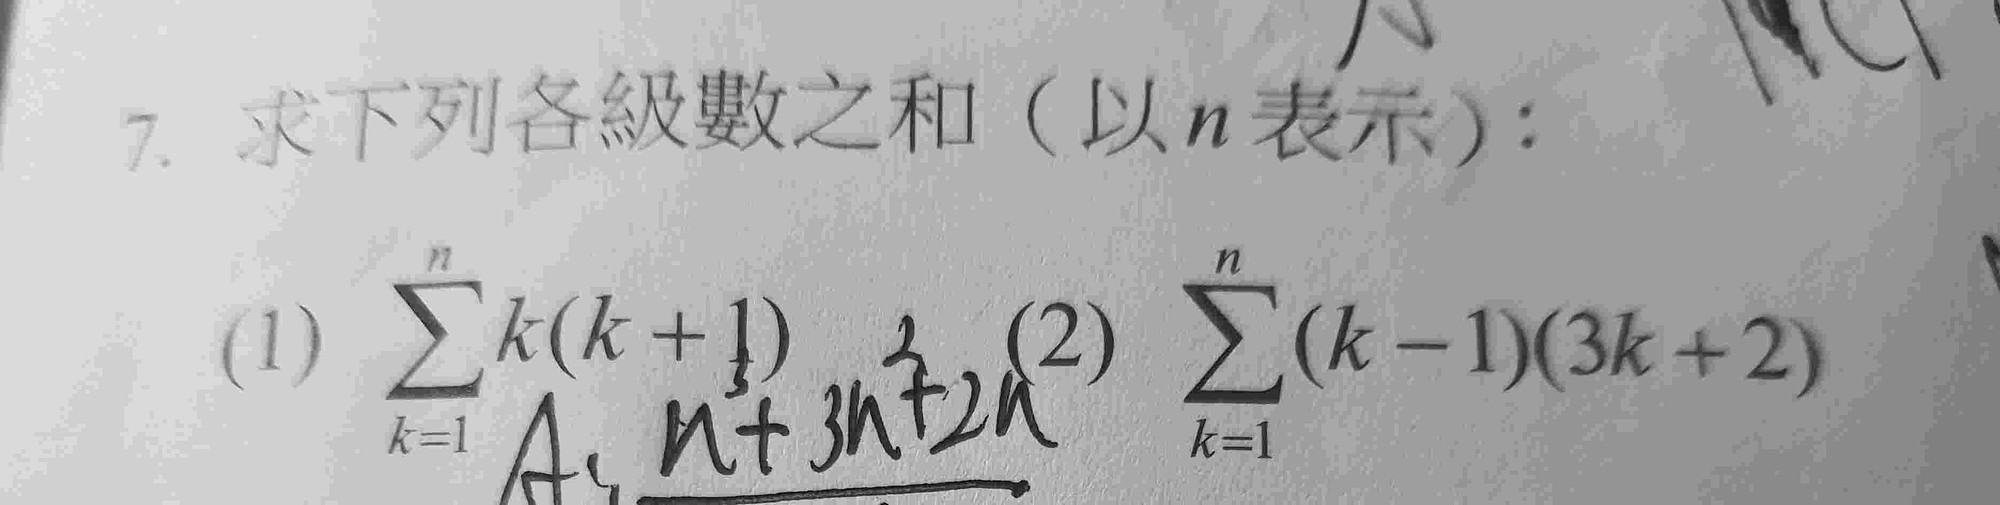 7. 求下列各級數之和（以n表示）:
(1) \sum_{k=1}^{n} k(k+1) (2) \sum_{k=1}^{n} (k-1)(3k+2)
A: n³+3n²+2n